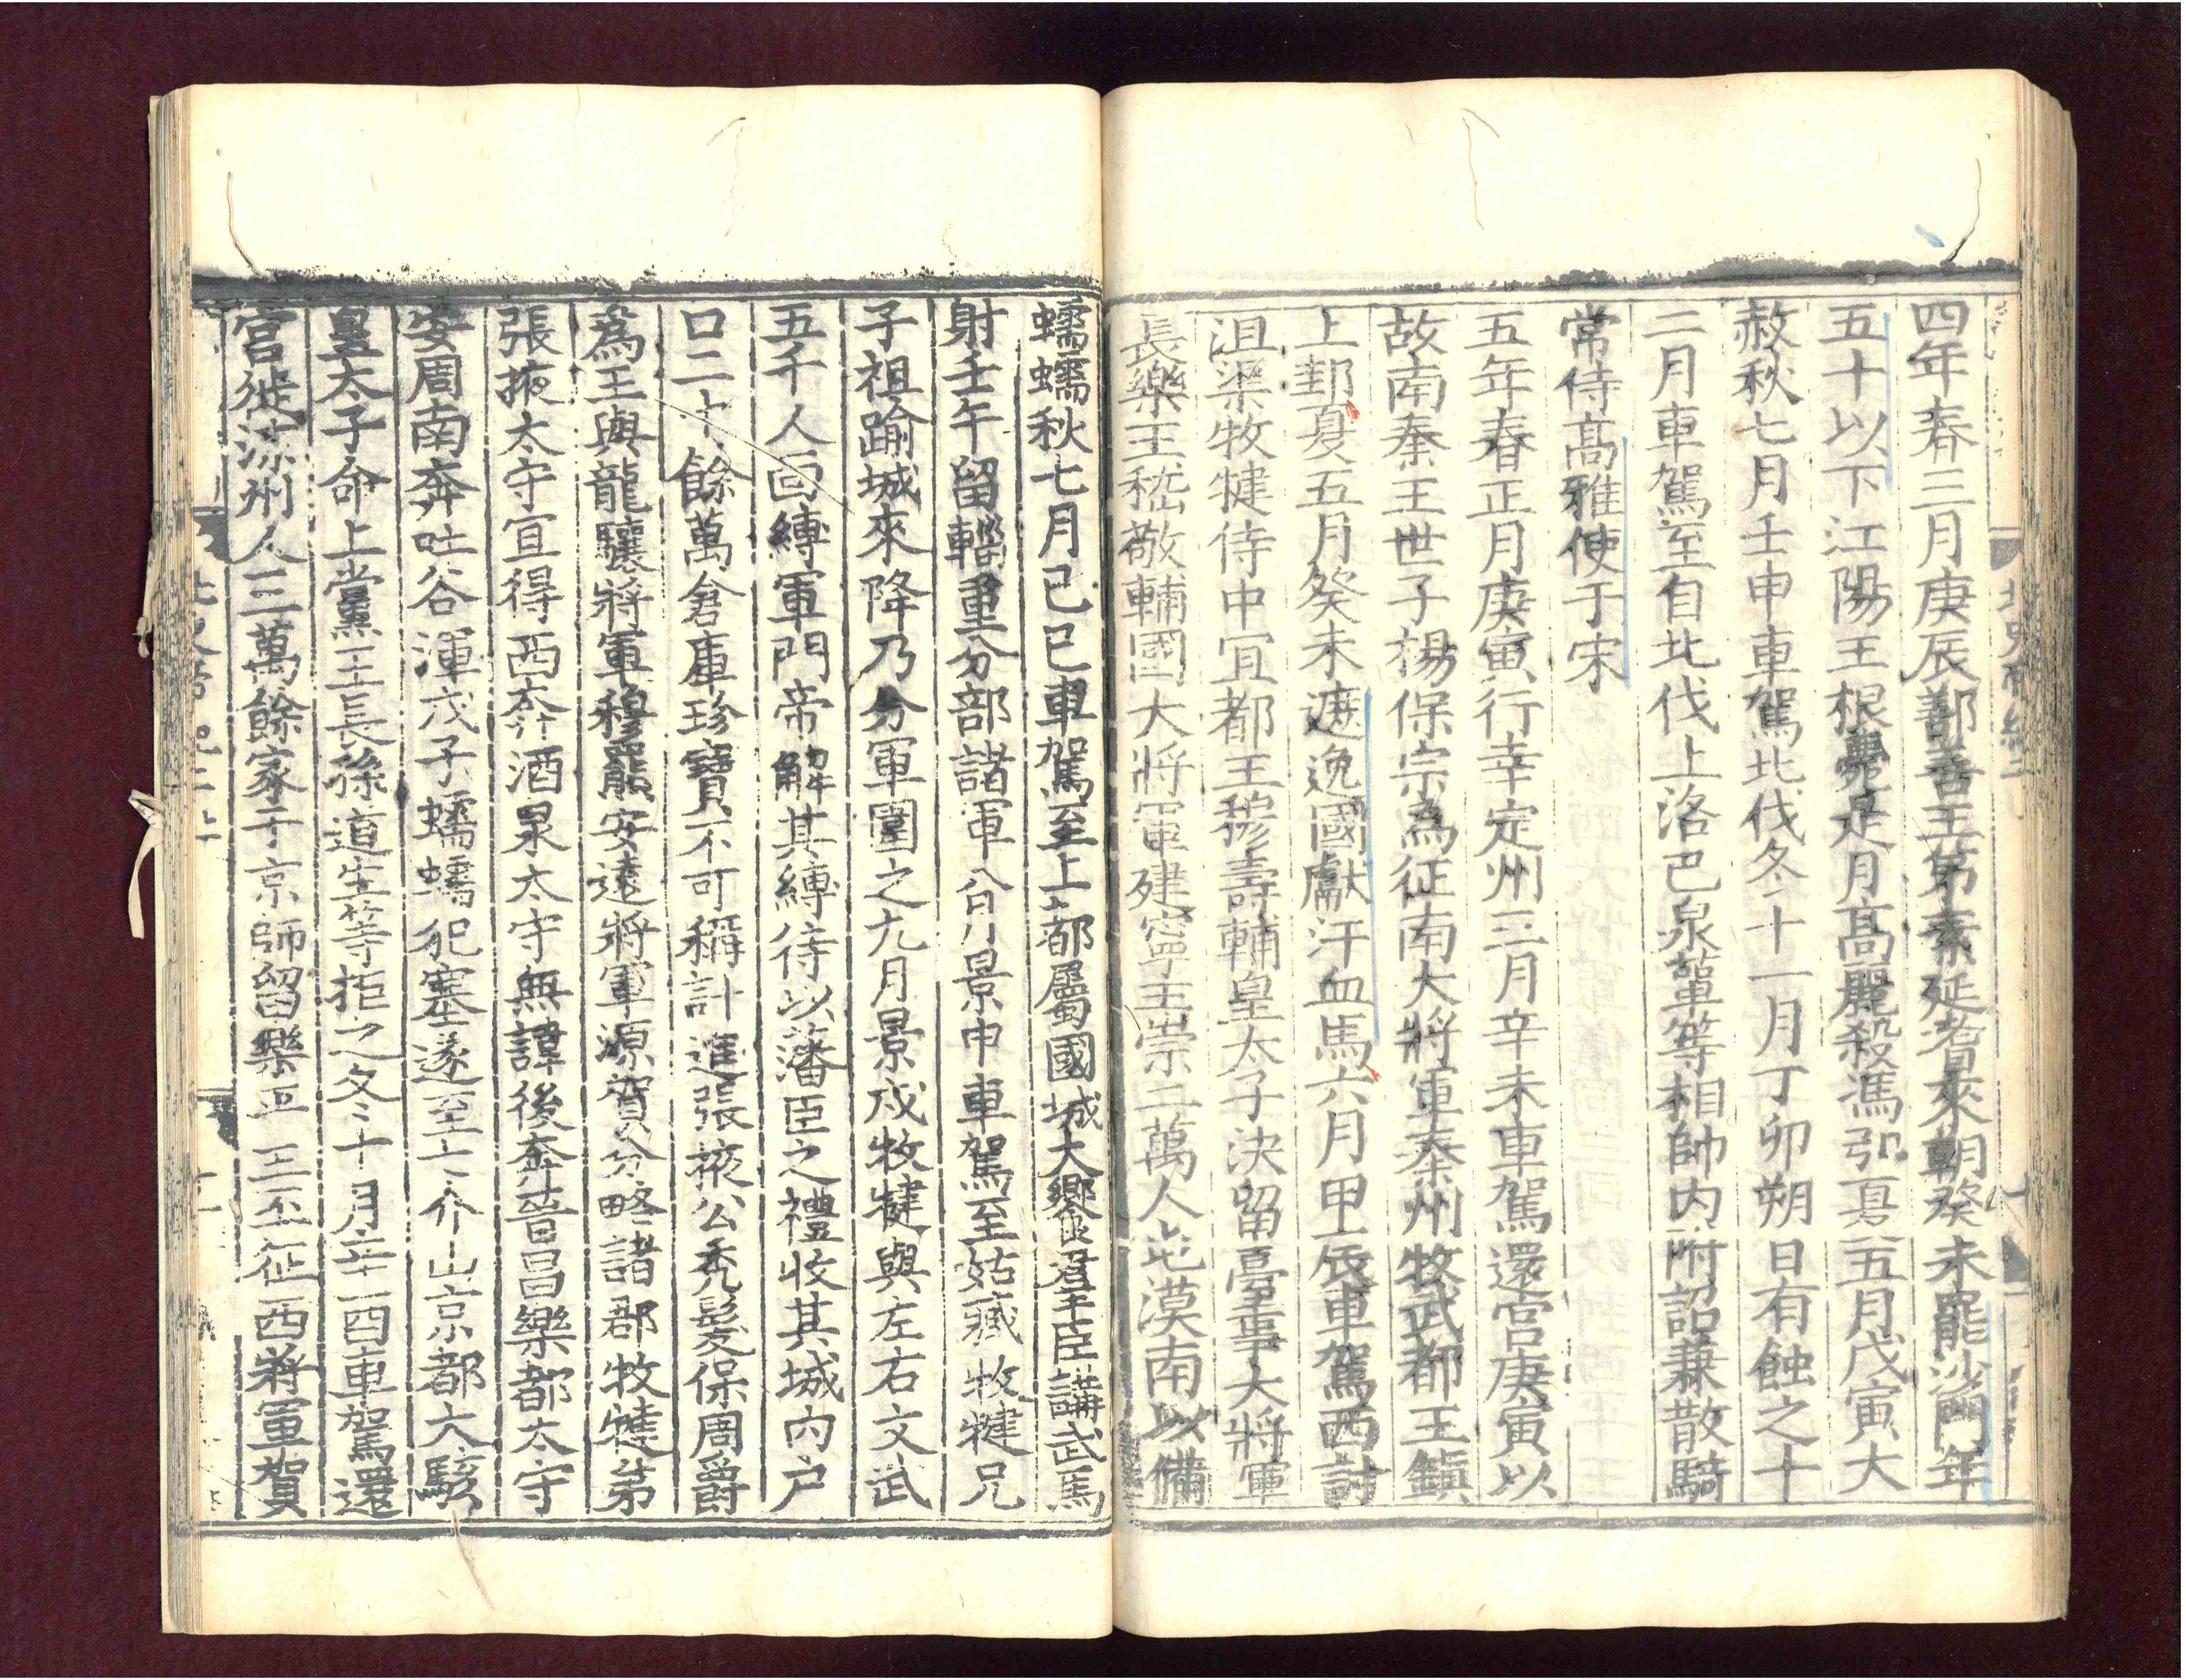 四年春三月庚辰鄯善王弟素延耆來朝癸未罷沙門年
五十以下江陽王根薨是月高麗殺馮弘夏五月戊寅大
赦秋七月壬申車駕北伐冬十一月丁卯朔日有蝕之十
二月車駕至自北伐上洛巴泉蕇等相帥内附詔兼散騎
常侍高雅使于宋
五年春正月庚寅行幸定州三月辛未車駕還宫庚寅以
故南秦王世子楊保宗為征南大將軍秦州牧武都王鎮
上邽夏五月癸未遮逸國獻汗血馬六月甲辰車駕西討
沮渠牧犍侍中宜都王穆壽輔皇太子決留臺事大將軍
長樂王嵇敬輔國大將軍建寧王崇二萬人屯漠南以備
蠕蠕秋七月己巳車駕至上都屬國城大饗羣臣講武馬
射壬午留輜重分部諸軍八月景申車駕至姑臧牧犍兄
子祖踰城來降乃分軍圍之九月景戌牧犍與左右文武
五千人靣縛軍門帝解其縛待以藩臣之禮收其城内户
口二十餘萬倉庫珍寶不可稱計進張掖公禿髮保周爵
為王與龍驤將軍穆羆安遠將軍源賀分略諸郡牧犍弟
張掖太守宜得西奔酒泉太守無諱後奔晉昌樂都太守
安周南奔吐谷渾戊子蠕蠕犯塞遂至七介山京都大駭
皇太子命上黨王長孫道生等拒之冬十月辛酉車駕還
宫徙涼州人三萬餘家于京師留樂平王丕征西將軍賀